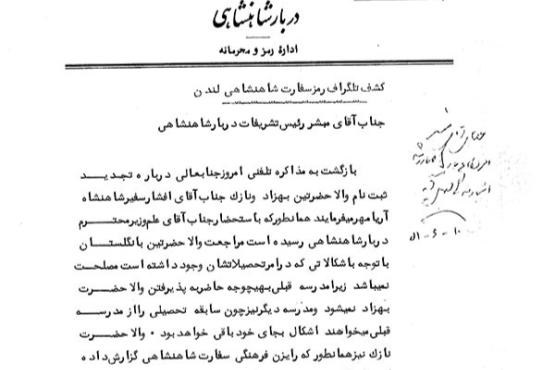 دربار شاهنشاهی
اداره رمز و محرمانه
کشف تلگراف رمز سفارت شاهنشاهی لندن
جناب آقای مبشر رئیس تشریفات دربار شاهنشاهی
بازگشت به مذاکره تلفنی امروز جنابعالی درباره تجدید
ثبت نام والا حضرتین بهزاد و نازک جناب آقای افشار سفیر شاهنشاه
آریامهر میفرمایند همانطور که با ستحضار جناب آقای علم وزیر محترم
دربار شاهنشاهی رسیده است مراجعت والا حضرتین بانگلستان
با توجه باشکالاتی که در امر تحصیلاتشان وجود داشته است مصلحت
نمیباشد زیرا مدرسه قبلی بهیچوجه حاضر به پذیرفتن والا حضرت
بهزاد نمیشود و مدرسه دیگر نیز چون سابقه تحصیلی را از مدرسه
قبلی میخواهند اشکال بجای خود باقی خواهد بود . والا حضرت
نازک نیز همانطور که رایزن فرهنگی سفارت شاهنشاهی گزارش داده